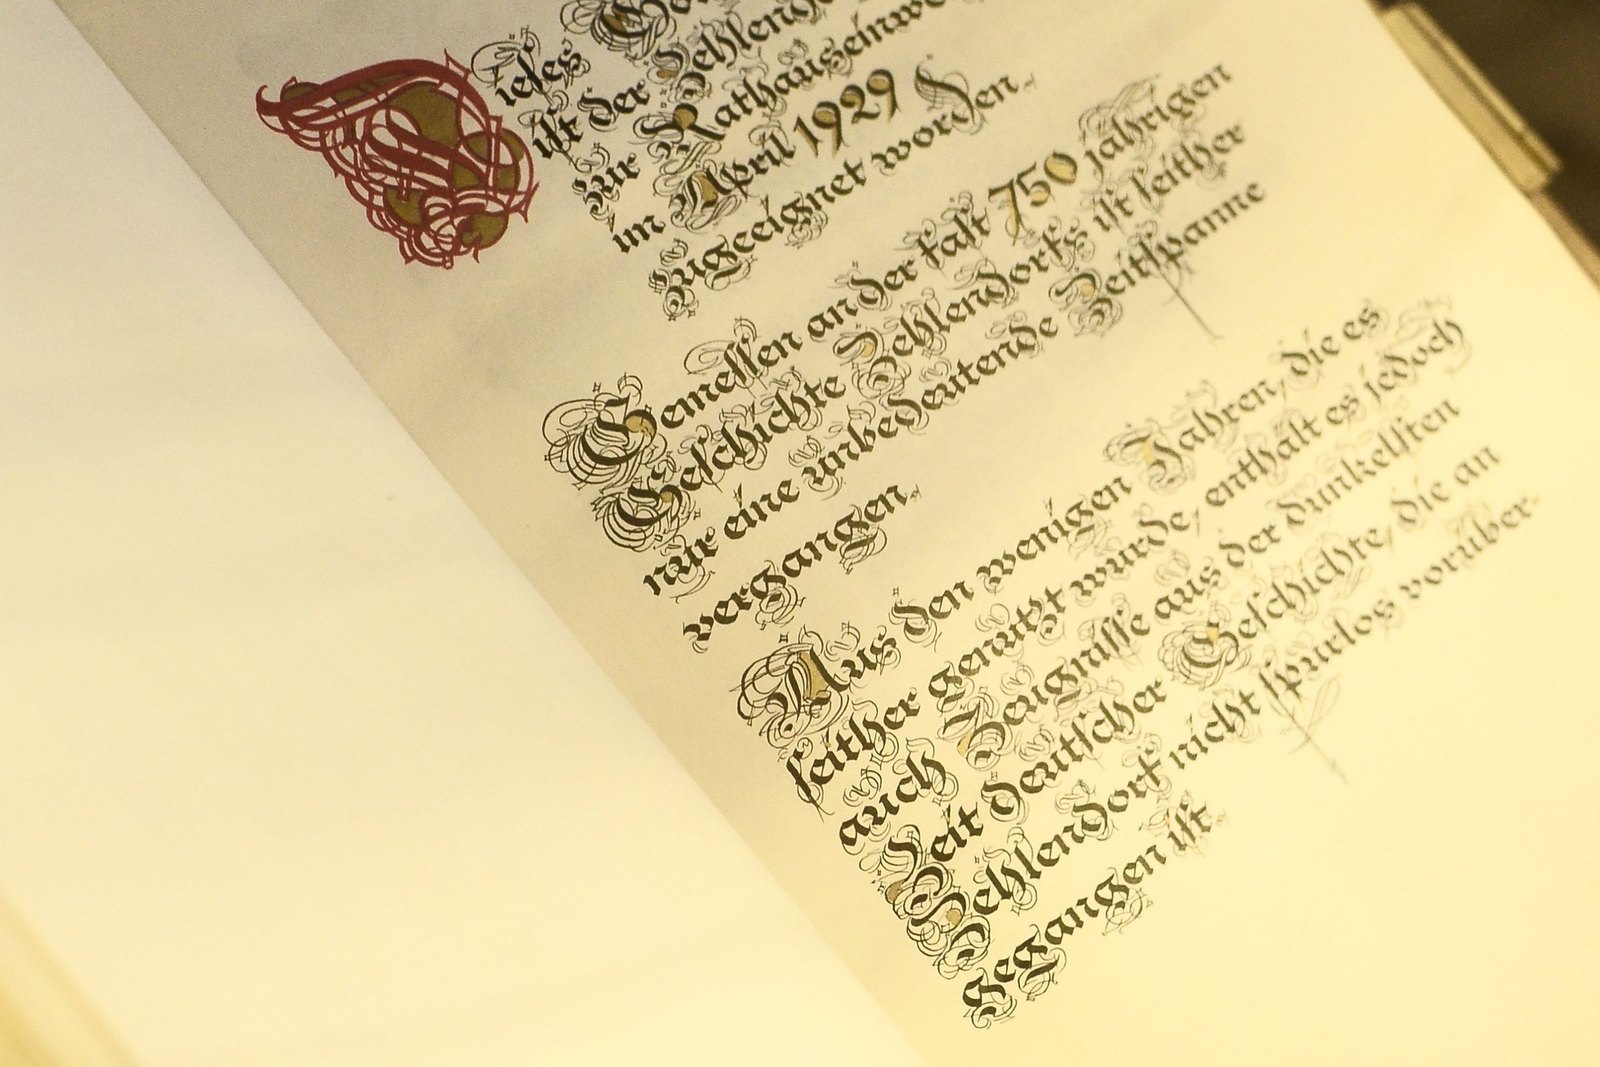 Dieses
ist der
zur
im April 1929
zugeeignet worden.
Gemessen an der fast 750 jährigen
Geschichte Zehlendorfs ist seither
nur eine unbedeutende Zeitspanne
vergangen.
Aus den wenigen Jahren, die es
seither genutzt wurde, enthält es jedoch
auch Zeugnisse aus der dunkelsten
Zeit deutscher Geschichte, die an
Zehlendorf nicht spurlos vorüber-
gegangen ist.